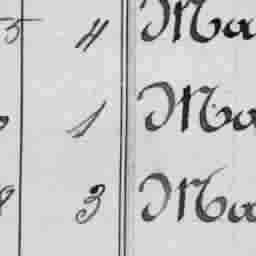 5 4 Ma
1 Ma
8 3 Ma